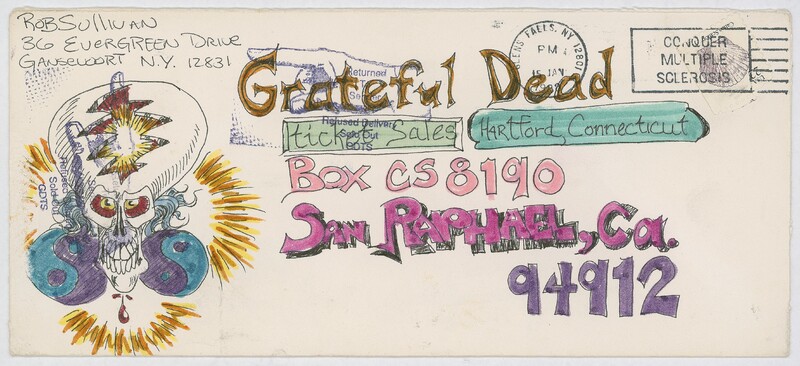 ROB SULLIVAN
36 EVERGREEN DRIVE
GANSEVOORT N.Y. 12831
Grateful Dead
ticket Sales
HARTFORD, CONNECTICUT
BOX CS 8190
SAN RAPHAEL, Ca.
94912
FALLS, NY 12801
PM
JAN
CONQUER
MULTIPLE
SCLEROSIS
Returned
Refused Delivery
Sold Out
GDTS
GDTS